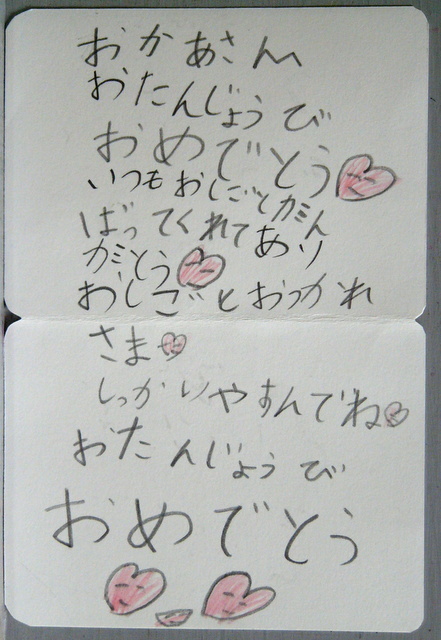 おかあさんへ
おたんじょうび
おめでとう
いつもおしごとがん
ばってくれてあり
がとう
おしごとおつかれ
さま
しっかりやすんでね
おたんじょうび
おめでとう